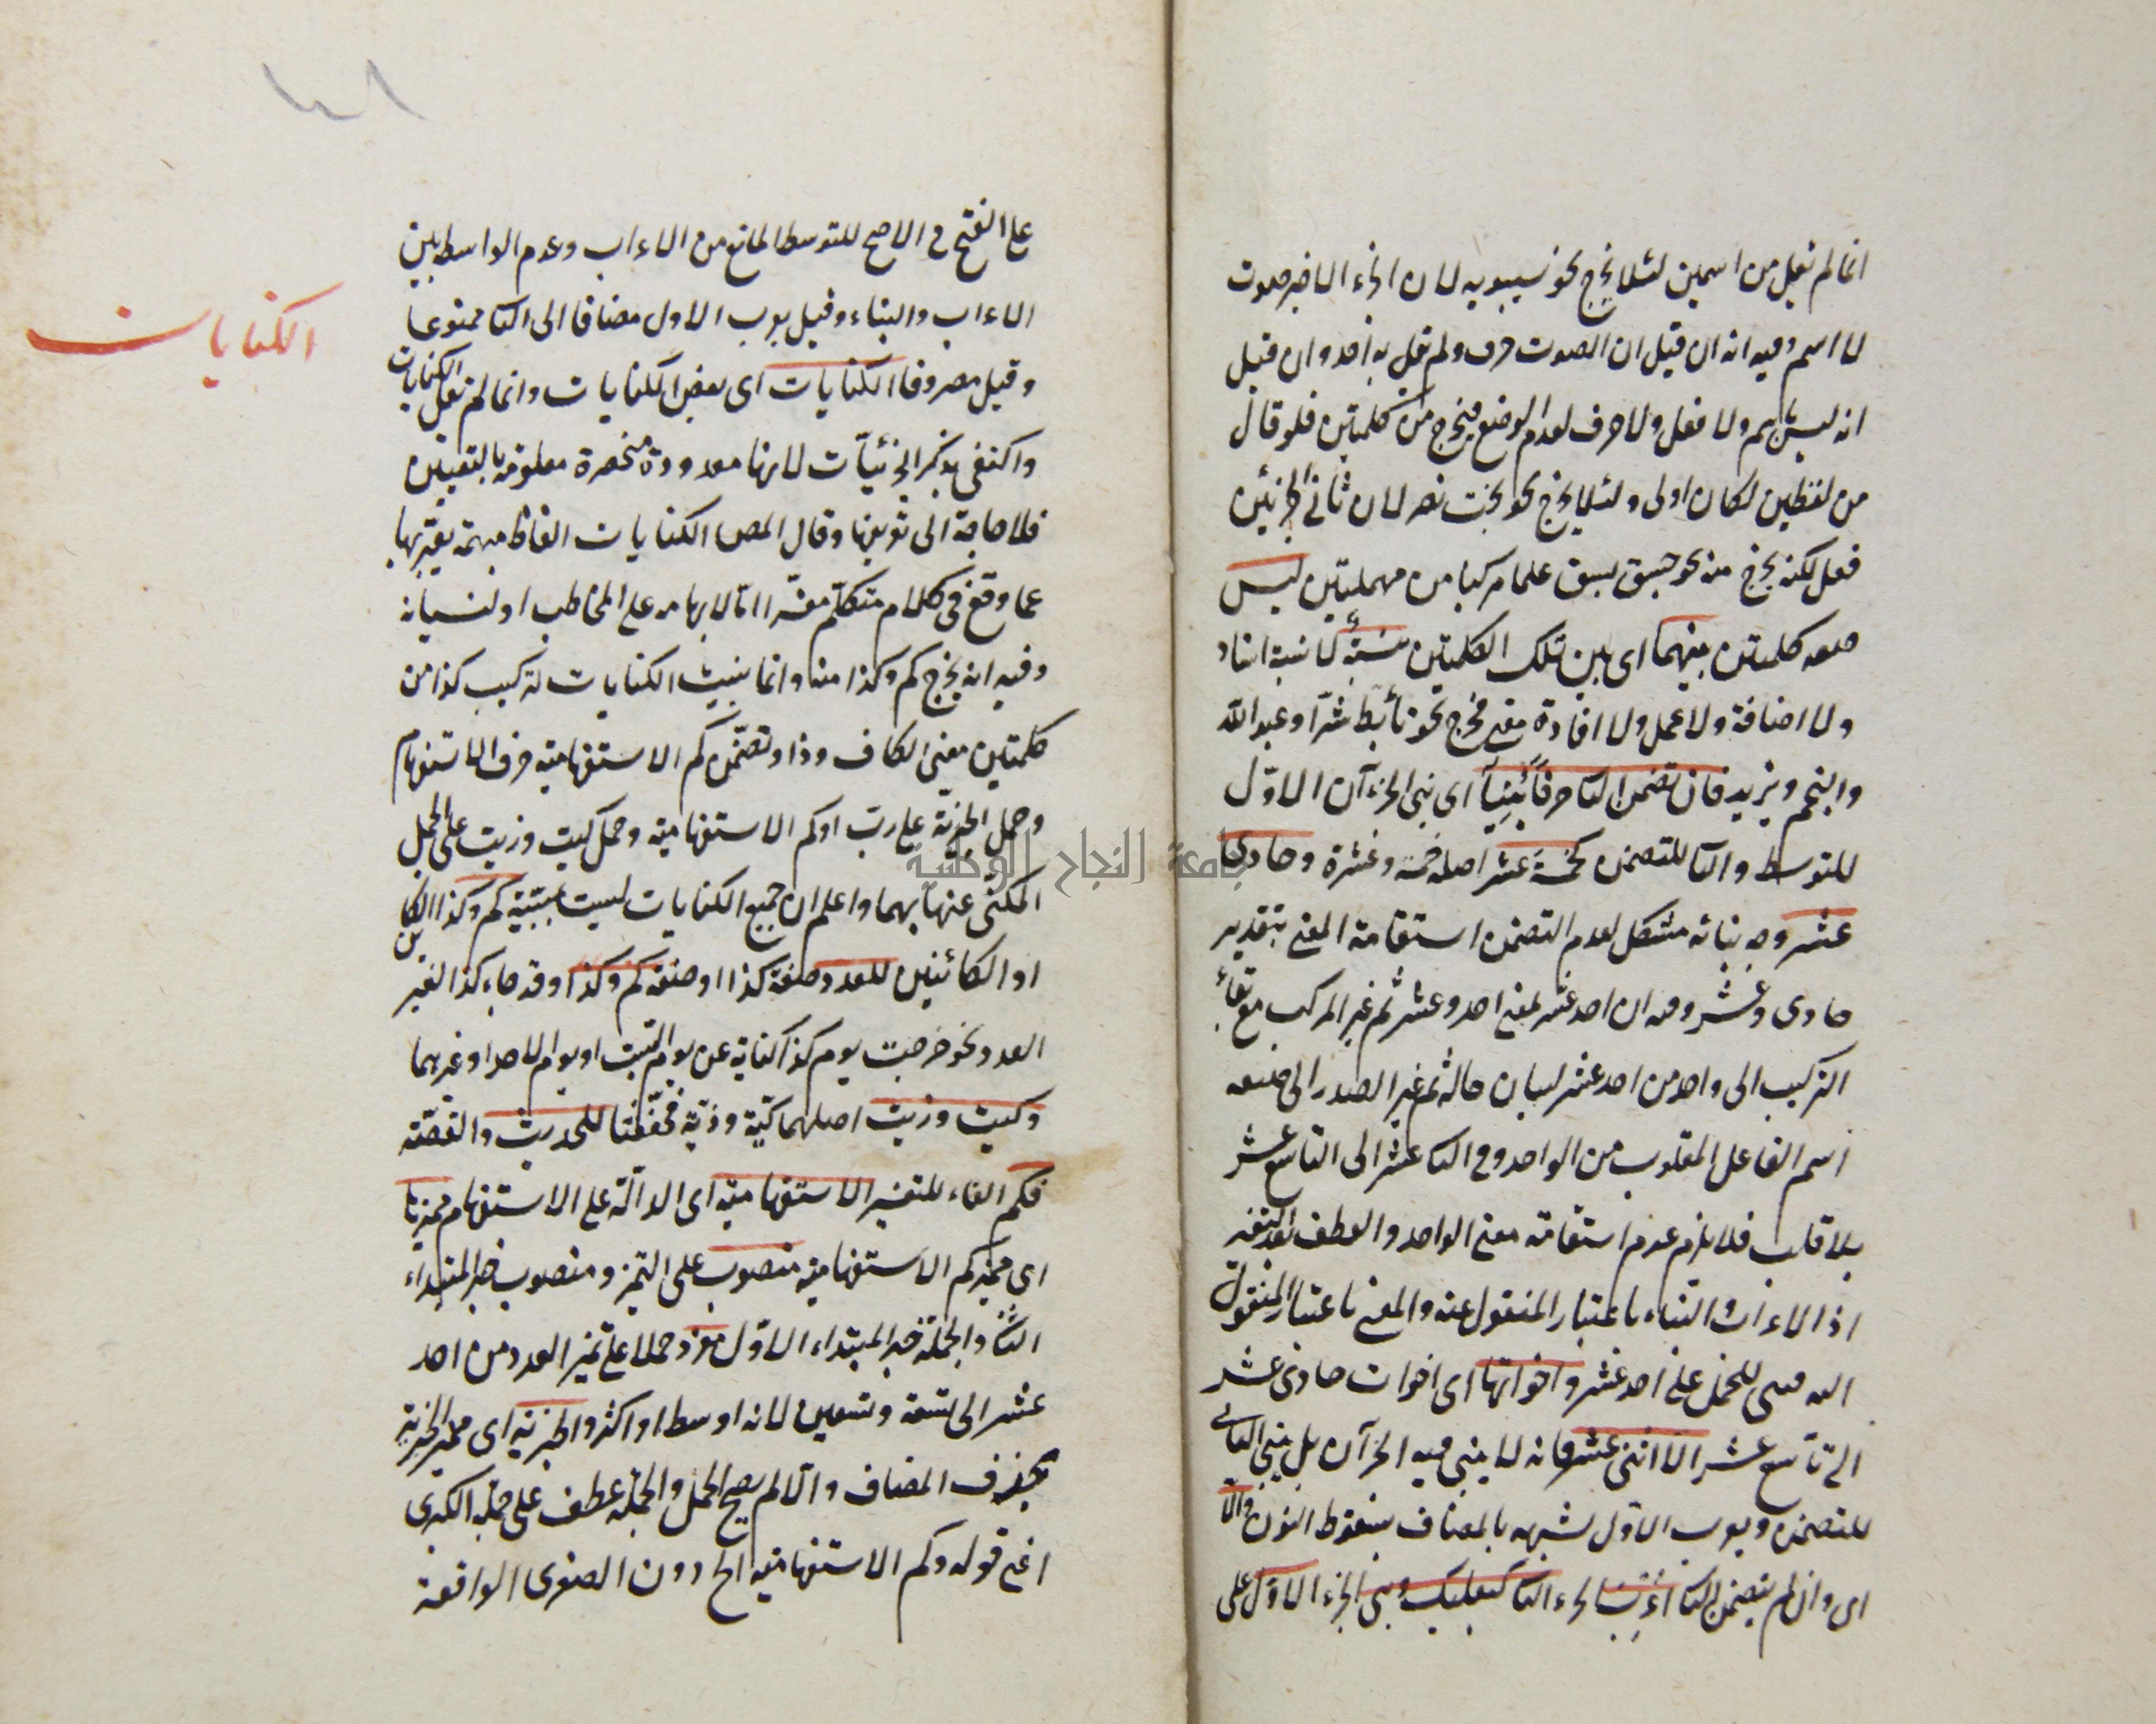 انما لم نقل من اسمين لئلا يخرج نحو سيبويه لان الجزء الاخير صوت
لا اسم وفيه انه ان قيل ان الصوت حرف ولم يقل به احد وان قيل
انه ليس باسم ولا فعل ولا حرف لعدم الوضع فيخرج من كلمتين فلو قال
من لفظين لكان اولى ولئلا يخرج نحو بخت نصر لان ثانى الجزئين
فعل لكنه يخرج منه نحو جسق بسق علما مركبا من مهملتين ليس
صفه كلمتين بينهما اى بين تلك الكلمتين نسبة لا نسبة اسناد
ولا اضافة ولا عمل ولا افادة معنى فخرج نحو تأبط شرا وعبد الله
والنجم ويزيد فان تضمن الثا حرفا بنيا اى بنى الجزآن الاول
للتوسط والثا للتضمن كخمسة عشر اصله خمسة وعشرة وحادى
عشر وجه بنائه مشكل لعدم التضمن استقامة المعنى بتقدير
حادى وعشر وفيه ان احد عشر بمعنى احد وعشر ثم غير المركب مع بقاء
التركيب الى واحد من احد عشر لبيان حاله ثم غير الصدر الى صيغه
اسم الفاعل المقلوب من الواحد وفى الثا عشر الى التاسع عشر
بلا قلب فلا يلزم عدم استقامة معنى الواحد والعطف بعد التغير
اذ الاعراب والبناء باعتبار المنقول عنه والمعنى باعتبار المنقول
اليه مبنى للحمل على احد عشر واخواتها اى اخوات حادى عشر
الى تاسع عشر الا اثنى عشر فانه لا يبنى فيه الجزآن بل يبنى الثانى
للتضمن ويعرب الاول لشبهه بالمضاف بسقوط النون والا
اى وان لم يتضمن الثا اعرب الجزء الثا كبعلبك وبنى الجزء الاول على
على الفتح فى الاصح للتوسط المانع من الاعراب وعدم الواسطه بين
الاعراب والبناء وقيل يعرب الاول مضافا الى الثا ممنوعا
وقيل مصروفا الكنايات اى بعض الكنايات وانما لم نقل الكنايات
واكتفى بذكر الجزئيات لانها معدودة منحصرة معلومة بالتعيين
فلا حاجة الى تعريفها وقال المص الكنايات الفاظ مبهمة يعبر بها
عما وقع فى كلام متكلم مفسرا اما لابهامه على المخاطب او لنسيانه
وفيه انه يخرج كم وكذا منها وانما بنيت الكنايات لتركيب كذا من
كلمتين معنى الكاف وذا وتضمن كم الاستفهامية حرف الاستفهام
وحمل الخبرية على رب او كم الاستفهامية وحمل كيت وذيت على الجمل
المكنى عنها بهما واعلم ان جميع الكنايات ليست بمبنية كم وكذا الكا
ئن
او الكائنين للعدد وصفة كذا او صفة كم وكذا وقد جاء كذا لغير
العدد نحو خرجت يوم كذا كناية عن يوم السبت او يوم الاحد او غيرهما
وكيت وذيت اصلهما كية وذية فخففتا للحديث والقصة
فكم الفاء للتفسير الاستفهامية اى الدالة على الاستفهام مميزها
اى مميز كم الاستفهامية منصوب على التميز ومنصوب خبر المبتداء
الثا والجملة خبر المبتداء الاول مفرد حملا على تميز العدد من احد
عشر الى تسعة وتسعين لانه اوسط او اكثر والخبرية اى مميز الخبرية
بحذف المضاف والا لم يصح الحمل والجملة عطف على جملة الكبرى
اعنى قوله وكم الاستفهامية الخ دون الصغرى الواقعة
الكنايات
جامعة النجاح الوطنية